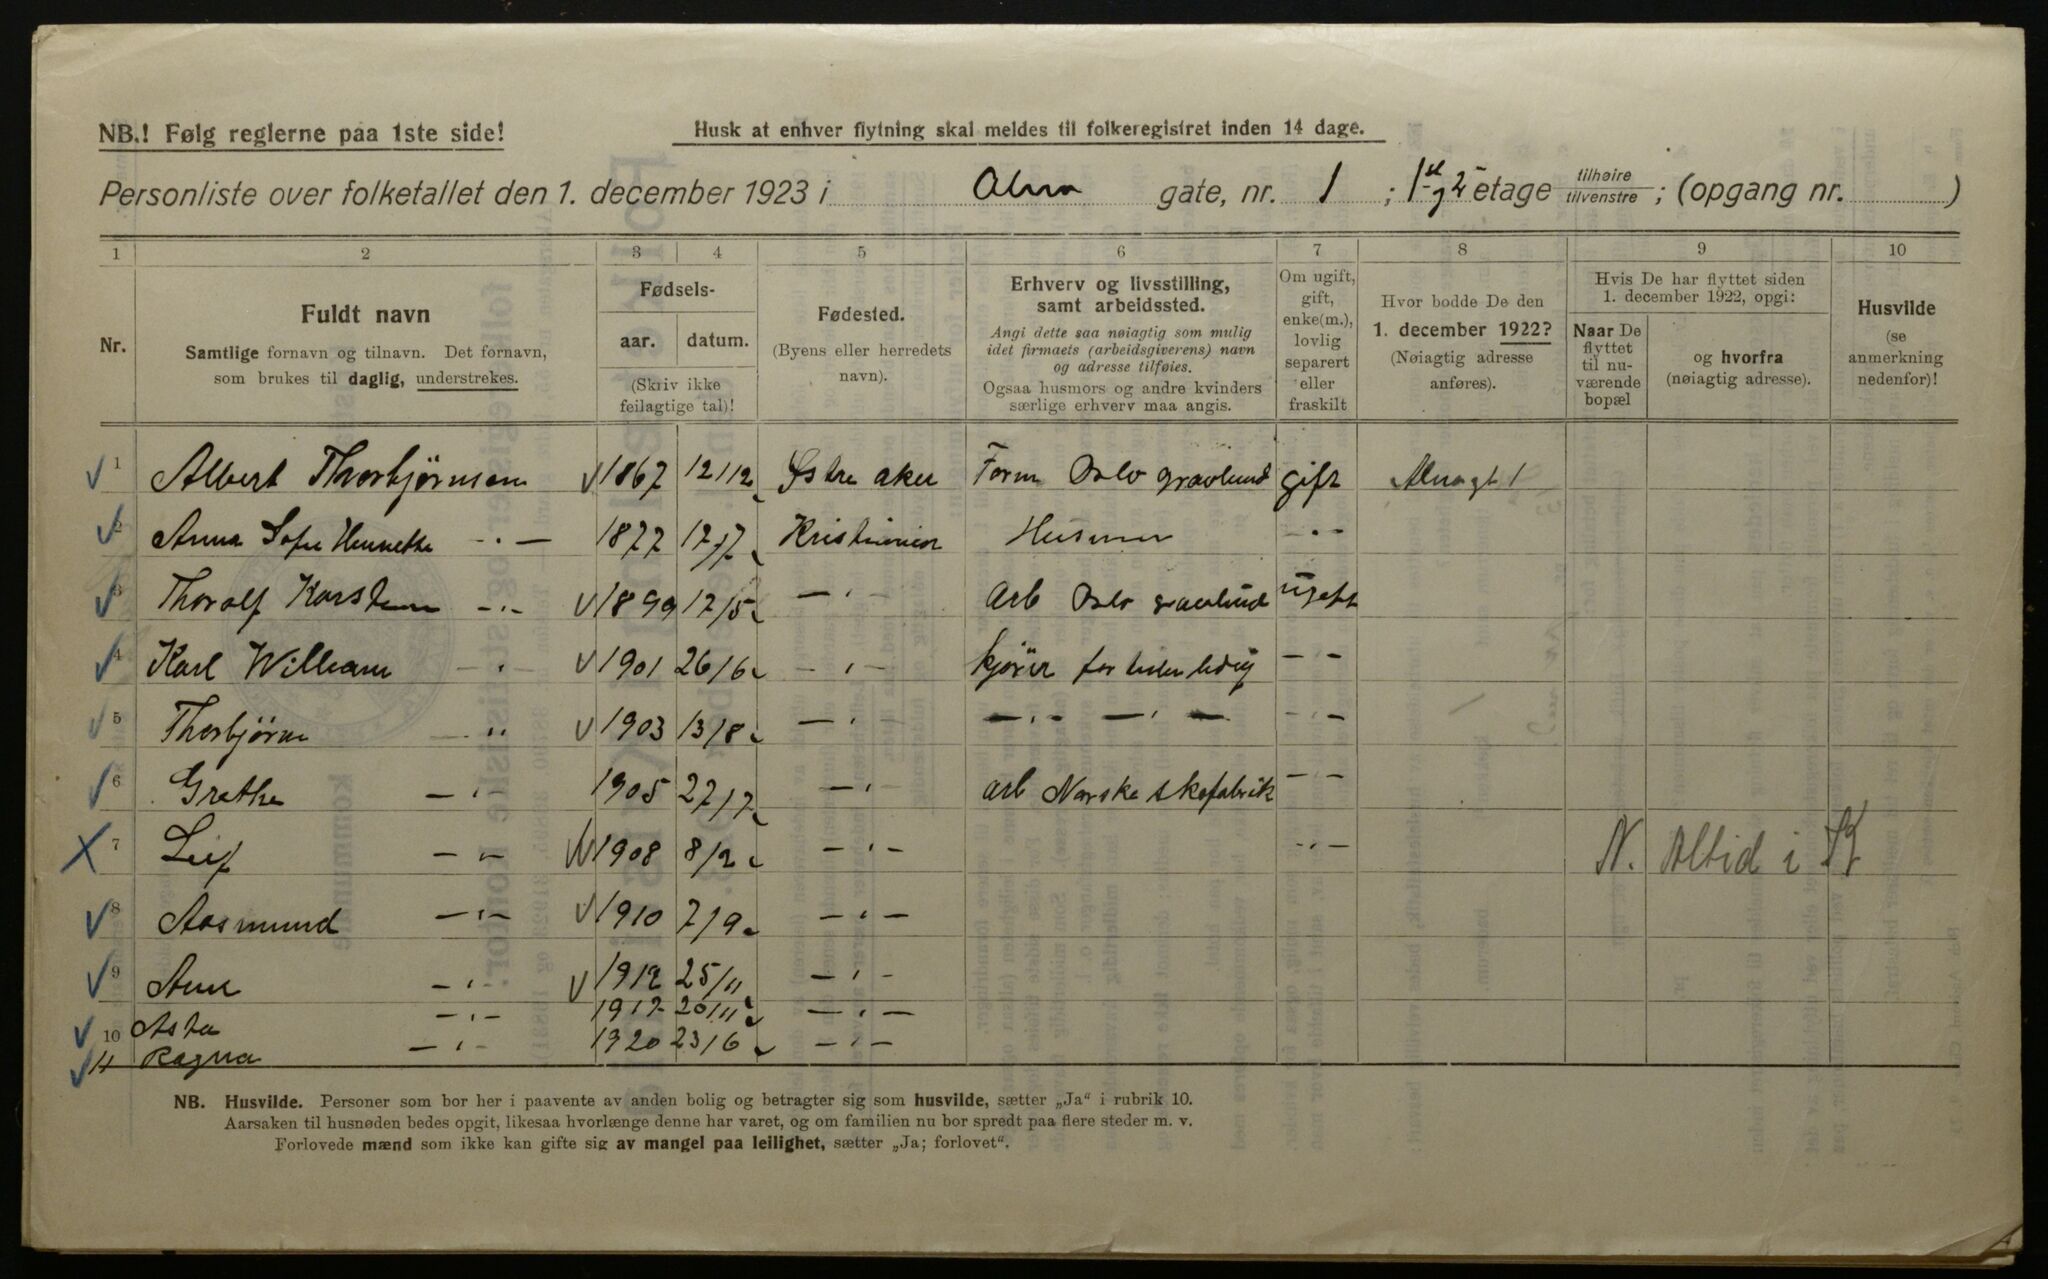 NB.! Følg reglerne paa 1ste side!
Husk at enhver flytning skal meldes til folkeregistret inden 14 dage.
Personliste over folketallet den 1. december 1923 i Alna gate, nr. 1 ; 1st og 2 etage tilhøire tilvenstre ; (opgang nr. )
1 2 3 4 5 6 7 8 9 10
Nr.
Fuldt navn
Samtlige fornavn og tilnavn. Det fornavn,
som brukes til daglig, understrekes.
Fødsels-
aar. datum.
(Skriv ikke
feilagtige tal)!
Fødested.
(Byens eller herredets
navn).
Erhverv og livsstilling,
samt arbeidssted.
Angi dette saa nøiagtig som mulig
idet firmaets (arbeidsgiverens) navn
og adresse tilføies.
Ogsaa husmors og andre kvinders
særlige erhverv maa angis.
Om ugift,
gift,
enke(m.),
lovlig
separert
eller
fraskilt
Hvor bodde De den
1. december 1922?
(Nøiagtig adresse
anføres).
Hvis De har flyttet siden
1. december 1922, opgi:
Naar De
flyttet
til nu-
værende
bopæl
og hvorfra
(nøiagtig adresse).
Husvilde
(se
anmerkning
nedenfor)!
1 Albert Thorbjørnsen 1867 12/12 Østre aker Form Oslo gravlund gift Alnagt 1
2 Anna Sofie Hennette -"- 1877 17/7 Kristiania Husmor -"-
3 Thoralf Karsten -"- 1899 17/5 -"- Arb Oslo gravlund ugift
4 Karl William -"- 1901 26/6 -"- kjører for tiden ledig -"-
5 Thorbjørn -"- 1903 13/8 -"- -"- -"- -"-
6 Grethe -"- 1905 27/7 -"- Arb Norske skofabrik -"-
7 Leif -"- 1908 8/2 -"- -"- N. Altid i K
8 Aasmund -"- 1910 7/9 -"-
9 Arne -"- 1912 25/11 -"-
10 Asta -"- 1917 20/11 -"-
11 Ragna -"- 1920 23/6 -"-
NB. Husvilde. Personer som bor her i paavente av anden bolig og betragter sig som husvilde, sætter „Ja" i rubrik 10.
Aarsaken til husnøden bedes opgit, likesaa hvorlænge denne har varet, og om familien nu bor spredt paa flere steder m. v.
Forlovede mænd som ikke kan gifte sig av mangel paa leilighet, sætter „Ja; forlovet".